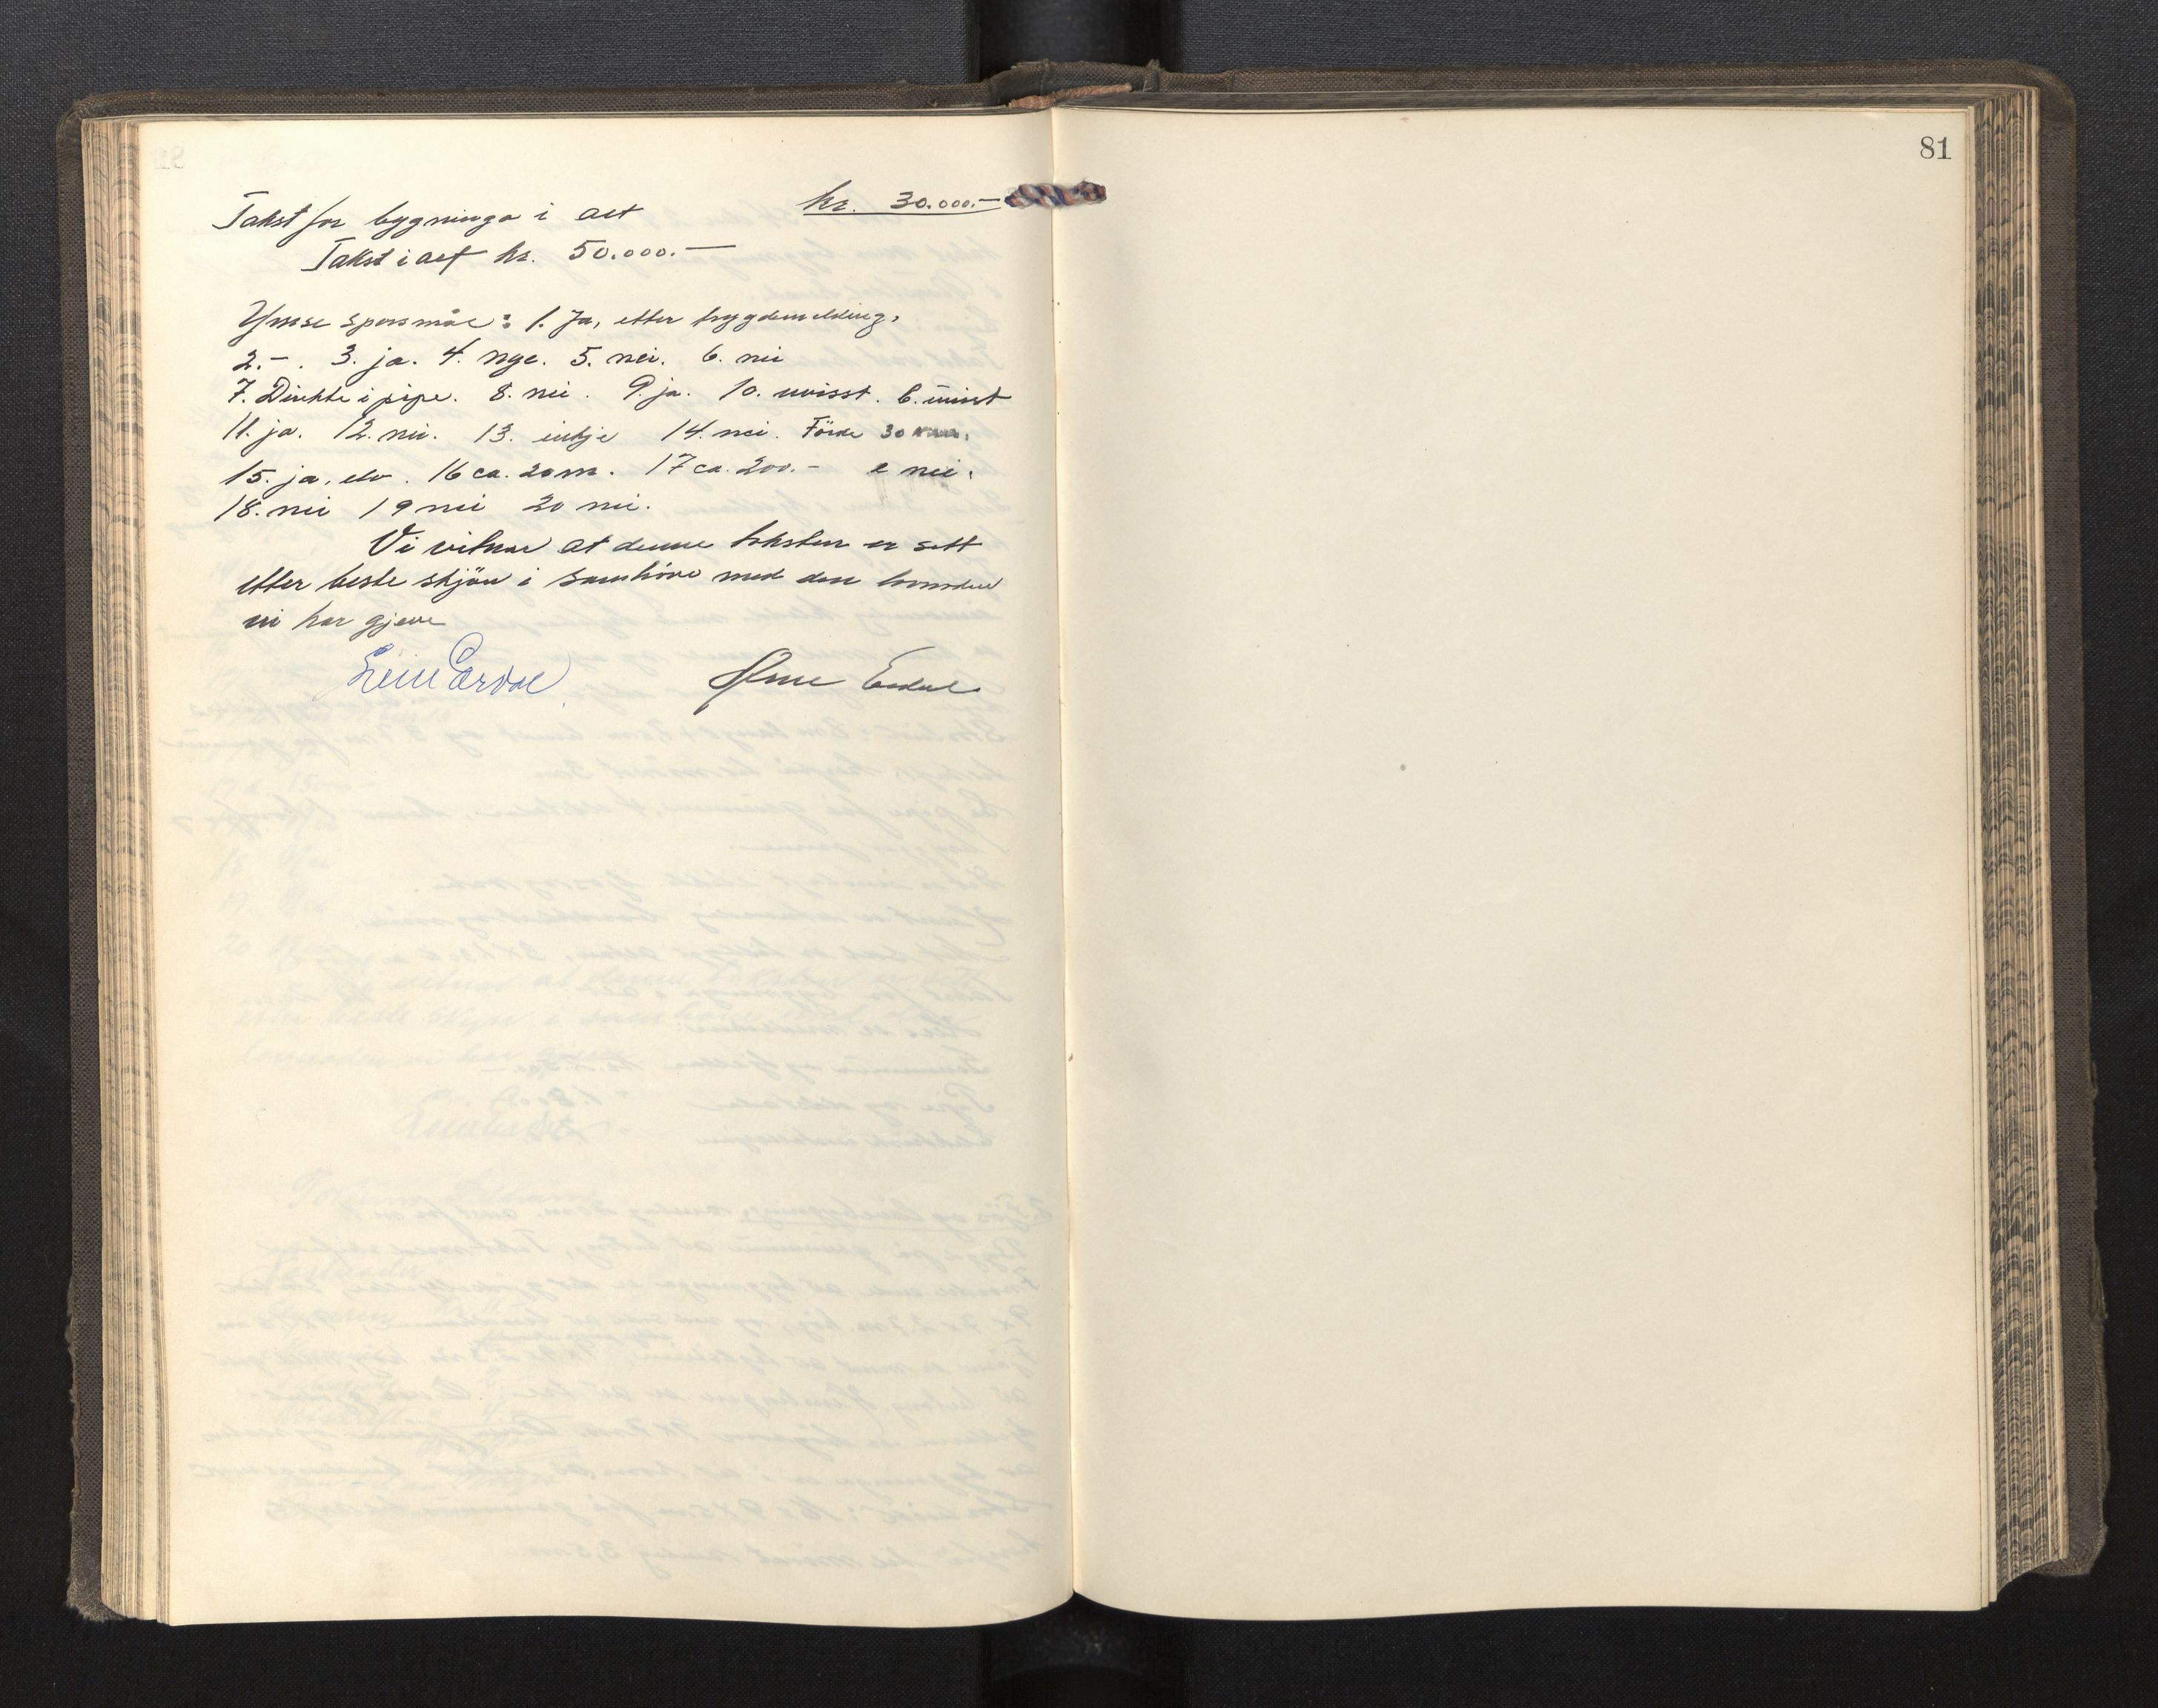 Takst for bygninga i alt kr. 30.000.-
Takst i alt kr. 50.000.-
Ymse spørsmål: 1. Ja, etter
2. - . 3. ja. 4. nye. 5. nei. 6. nei
7. Direkte i pipe. 8. nei. 9. ja. 10. uvisst. b. uvisst
11. ja. 12. nei. 13. intje 14. nei. Förde 30
15. ja, elv. 16 ca. 20 m. 17 ca. 200.- e nei.
18. nei 19 nei 20 nei.
Vi vitnar at denne taksten er sett
etter beste skjön i samhöve med den lovnaden
vi har gjeve
81